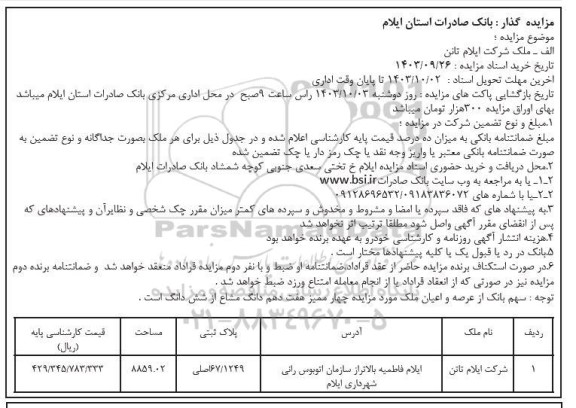 مزایده گذار : بانک صادرات استان ایلام
موضوع مزایده ؛
الف ـ ملک شرکت ایلام تانن
تاریخ خرید اسناد مزایده : ۱۴۰۳/۰۹/۲۶
آخرین مهلت تحویل اسناد : ۱۴۰۳/۱۰/۰۲ تا پایان وقت اداری
تاریخ بازگشایی پاکت های مزایده : روز دوشنبه ۱۴۰۳/۱۰/۰۳ راس ساعت ۹صبح در محل اداری مرکزی بانک صادرات استان ایلام میباشد
بهای اوراق مزایده ۳۰۰هزار تومان میباشد
۱ـمبلغ و نوع تضمین شرکت در مزایده ؛
مبلغ ضمانتنامه بانکی به میزان ده درصد قیمت پایه کارشناسی اعلام شده و در جدول ذیل برای هر ملک بصورت جداگانه و نوع تضمین به
صورت ضمانتنامه بانکی معتبر یا واریز وجه نقد یا چک رمز دار یا چک تضمین شده
۲ـمحل دریافت و خرید حضوری اسناد مزایده ایلام خ تختی سعدی جنوبی کوچه شمشاد بانک صادرات ایلام
۲ـ۱ـ یا به مراجعه به وب سایت بانک صادراتwww.bsi.ir
۲ـ۲ـیا با شماره های ۰۹۱۸۳۸۳۶۰۷۲/۰۹۱۲۸۶۹۶۵۳۲
۳ـبه پیشنهاد های که فاقد سپرده یا امضا و مشروط و مخدوش و سپرده های کمتر میزان مقرر چک شخصی و نظایرآن و پیشنهادهای که
پس از انقضای مقرر آگهی واصل شود مطلقا ترتیب اثر نخواهد شد
۴ـهزینه انتشار آگهی روزنامه و کارشناسی خودرو به عهده برنده خواهد بود
۵ـبانک در رد یا قبول یک یا کلیه پیشنهادها مختار است .
۶ـدر صورت استنکاف برنده مزایده حاضر از عقد قراداد،ضمانتنامه او ضبط و با نفر دوم مزایده قراداد منعقد خواهد شد و ضمانتنامه برنده دوم
مزایده نیز در صورتی که از انعقاد قراداد یا از انجام معامله امتناع ورزد ضبط خواهد شد .
توجه : سهم بانک از عرصه و اعیان ملک مورد مزایده چهار ممیز هفت دهم دانگ مشاع از شش دانگ است .
ردیف نام ملک آدرس پلاک ثبتی مساحت قیمت کارشناسی پایه (ریال)
۱ شرکت ایلام تانن ایلام فاطمیه بالاتراز سازمان اتوبوس رانی شهرداری ایلام ۶۷/۱۲۴۹اصلی ۸۸۵۹.۰۲ ۴۲۹/۳۴۵/۷۸۳/۳۳۳
ParsNamadData
۰۲۱-۸۸۳۴۹۶۷۰-۵